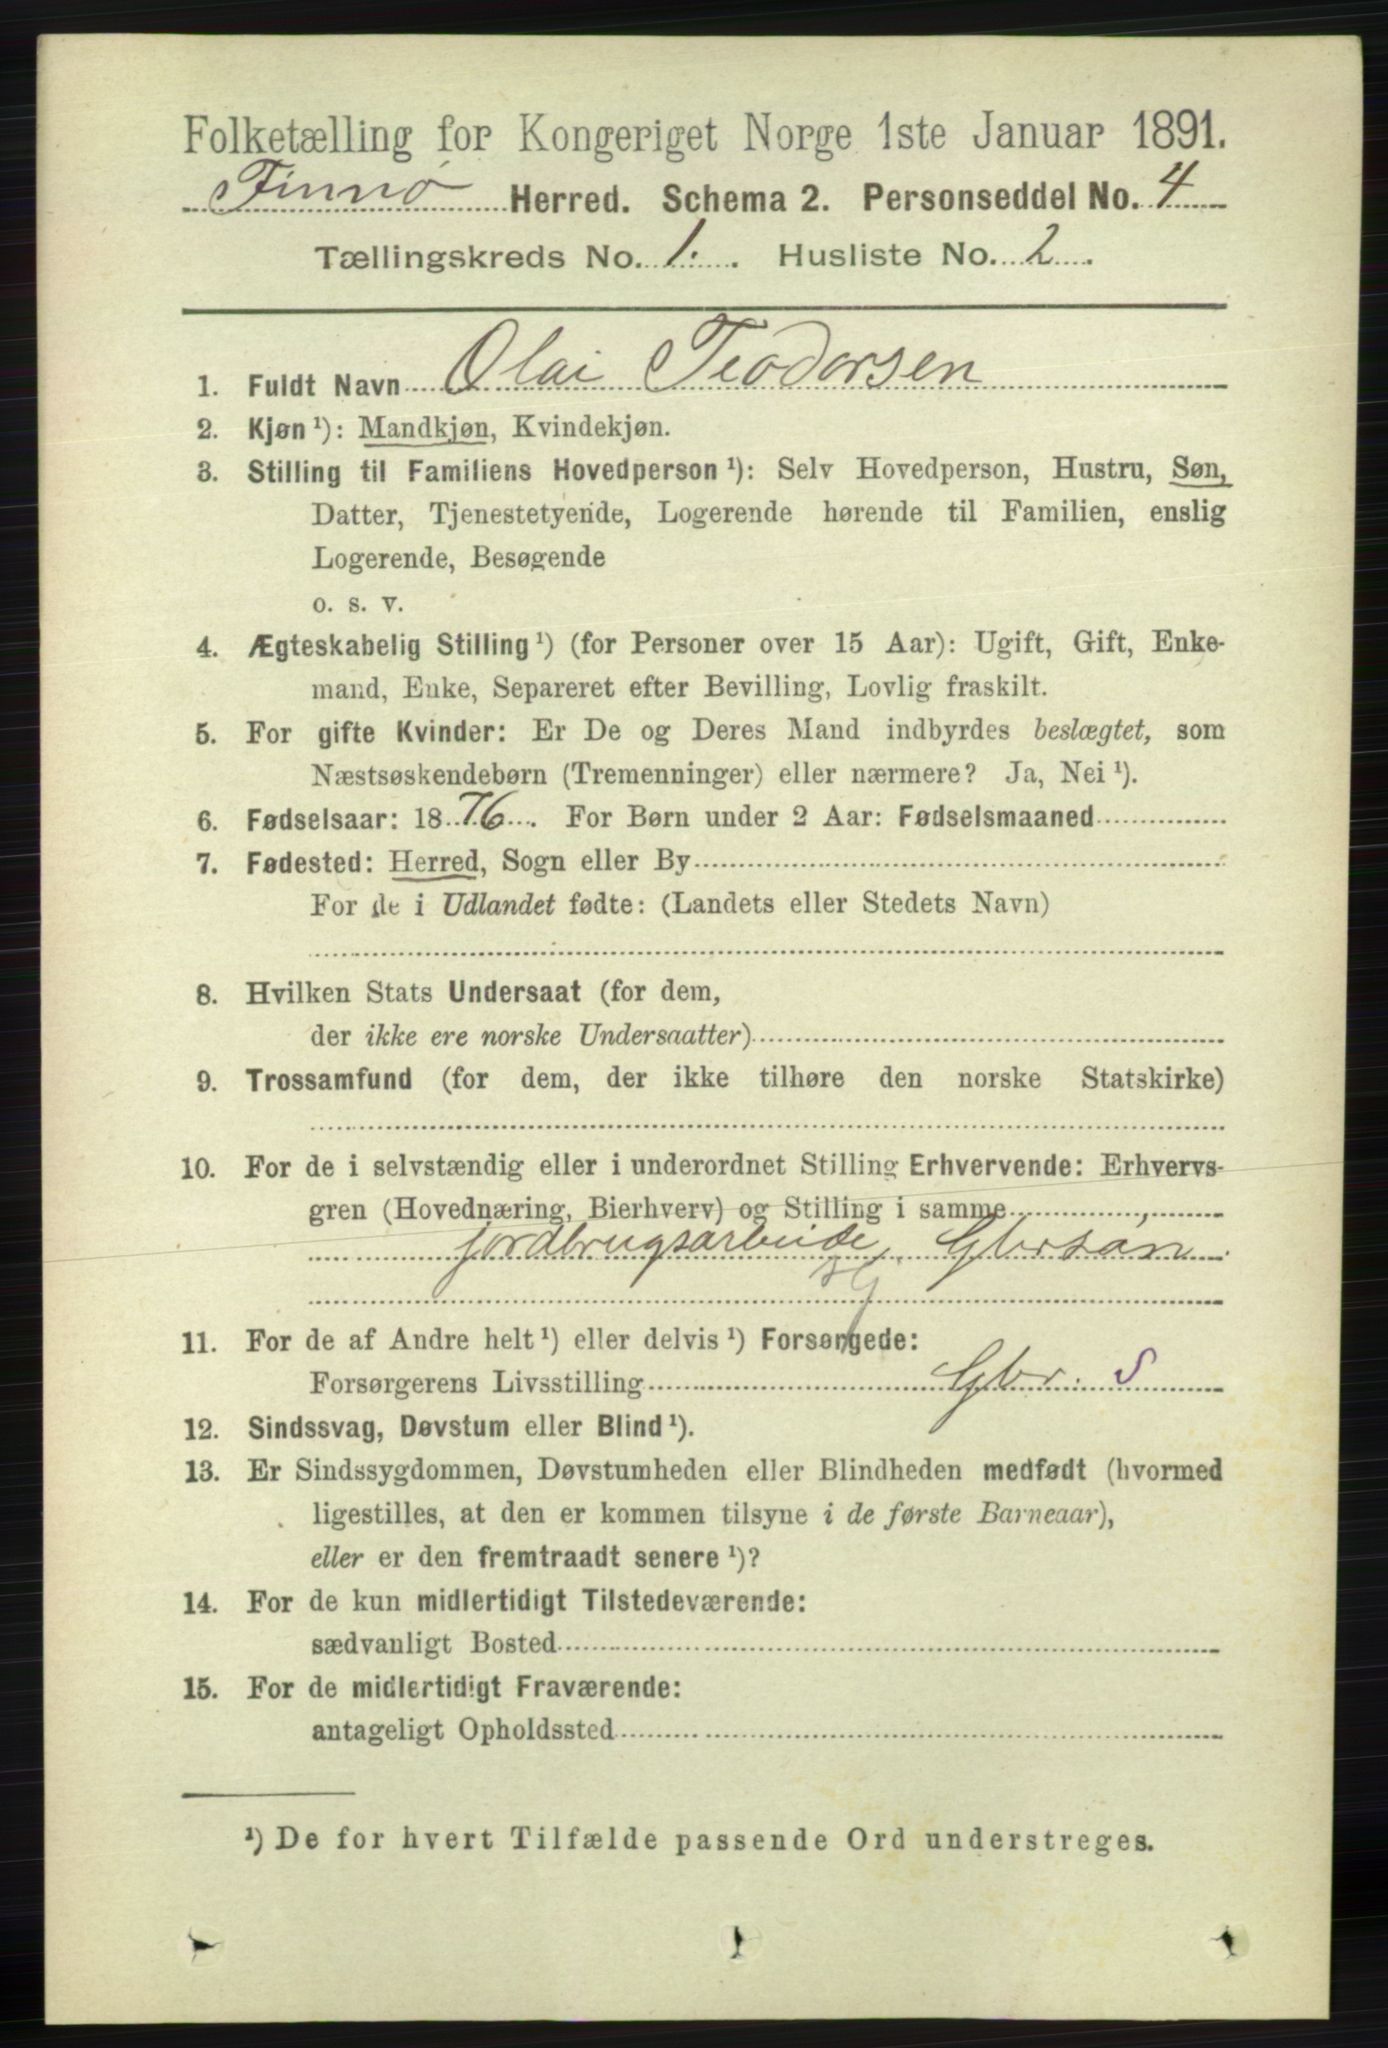 Folketælling for Kongeriget Norge 1ste Januar 1891.
Finnø Herred. Schema 2. Personseddel No. 4
Tællingskreds No. 1. Husliste No. 2
1. Fuldt Navn Olai Teodorsen
2. Kjøn ¹): Mandkjøn, Kvindekjøn.
3. Stilling til Familiens Hovedperson ¹): Selv Hovedperson, Hustru, Søn,
Datter, Tjenestetyende, Logerende hørende til Familien, enslig
Logerende, Besøgende
o. s. v.
4. Ægteskabelig Stilling ¹) (for Personer over 15 Aar): Ugift, Gift, Enke-
mand, Enke, Separeret efter Bevilling, Lovlig fraskilt.
5. For gifte Kvinder: Er De og Deres Mand indbyrdes beslægtet, som
Næstsøskendebørn (Tremenninger) eller nærmere? Ja, Nei ¹).
6. Fødselsaar: 1876. For Børn under 2 Aar: Fødselsmaaned
7. Fødested: Herred, Sogn eller By
For de i Udlandet fødte: (Landets eller Stedets Navn)
8. Hvilken Stats Undersaat (for dem,
der ikke ere norske Undersaatter)
9. Trossamfund (for dem, der ikke tilhøre den norske Statskirke)
10. For de i selvstændig eller i underordnet Stilling Erhvervende: Erhvervs-
gren (Hovednæring, Bierhverv) og Stilling i samme
jordbrugsarbeide, Gbrsøn
11. For de af Andre helt ¹) eller delvis ¹) Forsørgede:
Forsørgerens Livsstilling Gbr. S
12. Sindssvag, Døvstum eller Blind ¹).
13. Er Sindssygdommen, Døvstumheden eller Blindheden medfødt (hvormed
ligestilles, at den er kommen tilsyne i de første Barneaar),
eller er den fremtraadt senere ¹)?
14. For de kun midlertidigt Tilstedeværende:
sædvanligt Bosted
15. For de midlertidigt Fraværende:
antageligt Opholdssted
¹) De for hvert Tilfælde passende Ord understreges.